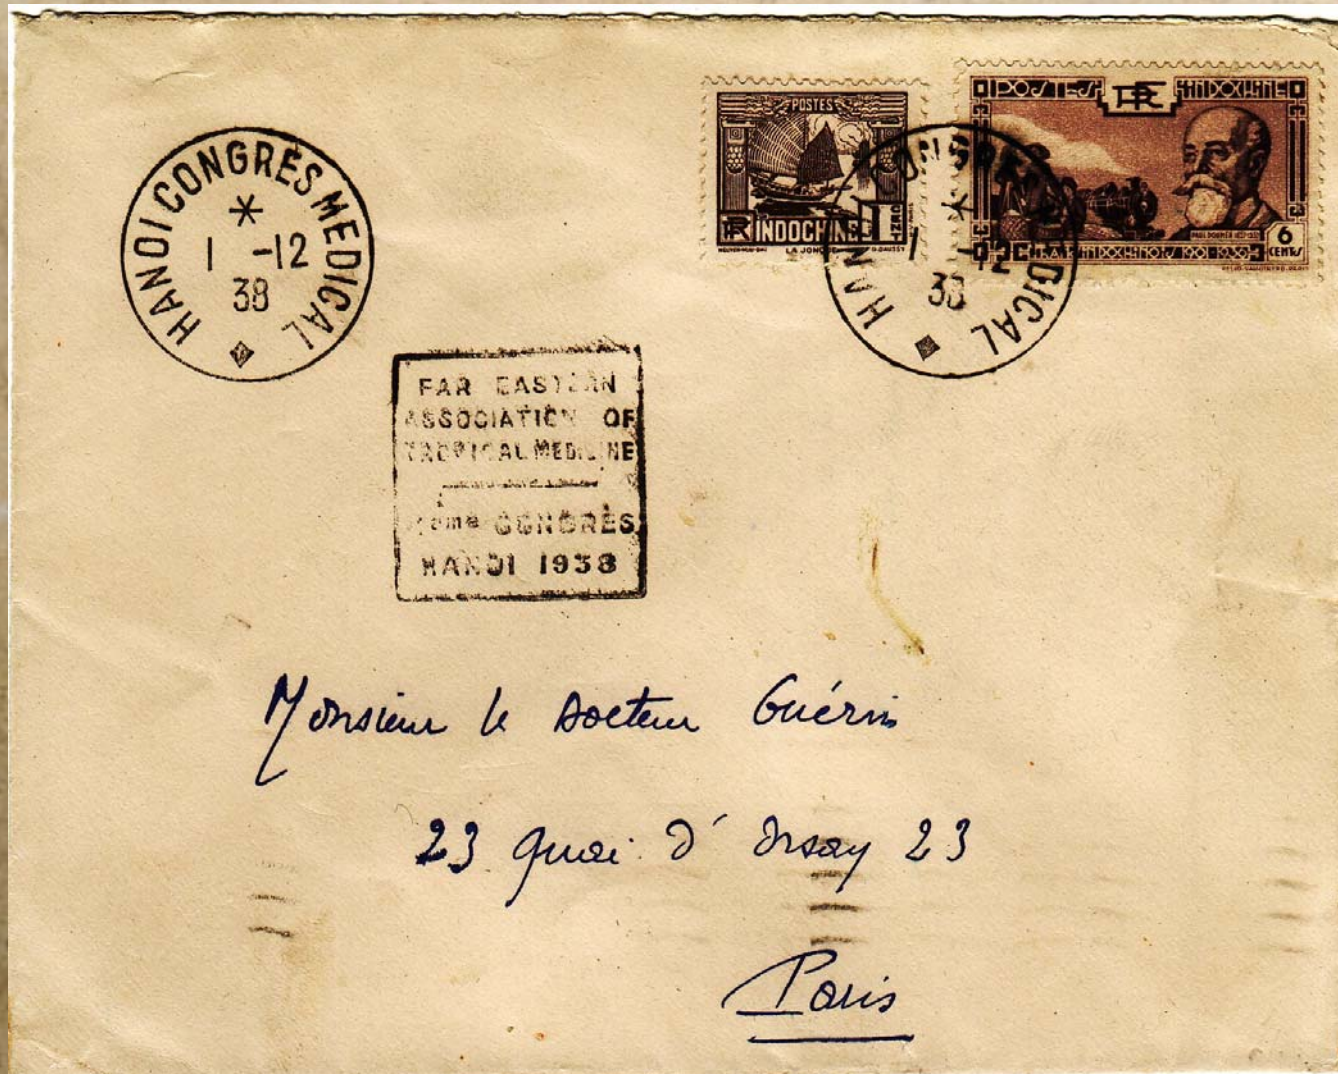 HANOI CONGRÈS MEDICAL
1 -12
38
POSTES
RF INDOCHINE
LA JONQUE
POSTES RF INDOCHINE
PAUL DOUMER
6
CENTS
TRANSINDOCHINOIS 1901-1936
HANOI CONGRÈS MEDICAL
1 -12
38
FAR EASTERN
ASSOCIATION OF
TROPICAL MEDICINE
ème CONGRÈS
HANOI 1938
Monsieur le Docteur Guérin
23 quai d'Orsay 23
Paris